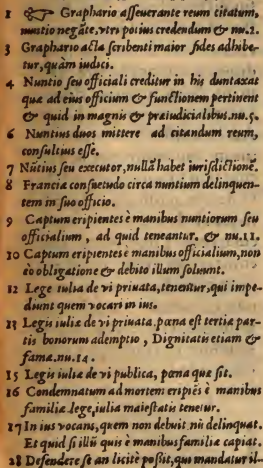 1 ☞ Graphario asseuerante reum citatum,
nuntio negāte, vtri potius credendum & nu.2.
3 Graphario acta scribenti maior fides adhibe-
tur, quàm iudici.
4 Nuntio seu officiali creditur in his duntaxat
quæ ad eius officium & functionem pertinent
& quid in magnis & præiudicialibus.nu.5.
6 Nuntius duos mittere ad citandum reum,
consultius esse.
7 Nūtius seu executor, nullā habet iurisdictionē.
8 Francia consuetudo circa nuntium delinquen-
tem in suo officio.
9 Captum eripientes è manibus nuntiorum seu
officialium, ad quid teneantur. & nu.11.
10 Captum eripientes è manibus officialium, non
eo obligatione & debito illum soluunt.
12 Lege iulia de vi priuata, tenentur, qui impe-
diunt quem vocari in ius.
13 Legis iuliæ de vi priuata. pœna est tertiæ par-
tis bonorum ademptio, Dignitatis etiam &
famæ.nu.14.
15 Legis iuliæ de vi publica, pœna quæ sit.
16 Condemnatum ad mortem eripiēs è manibus
familiæ lege, iulia maiestatis tenetur.
17 In ius vocans, quem non debuit nū delinquat.
Et quid si illū quis è manibus familiæ capiat.
18 Defendere se an licitè possit, quis mandatur il-